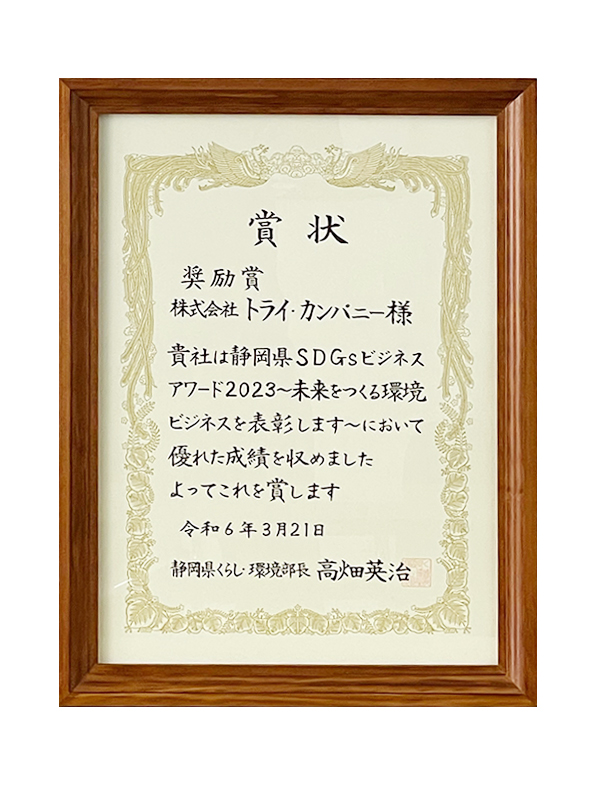 賞状
奨励賞
株式会社トライ・カンパニー様
貴社は静岡県SDGsビジネス
アワード2023〜未来をつくる環境
ビジネスを表彰します〜において
優れた成績を収めました
よってこれを賞します
令和6年3月21日
静岡県くらし・環境部長 高畑英治